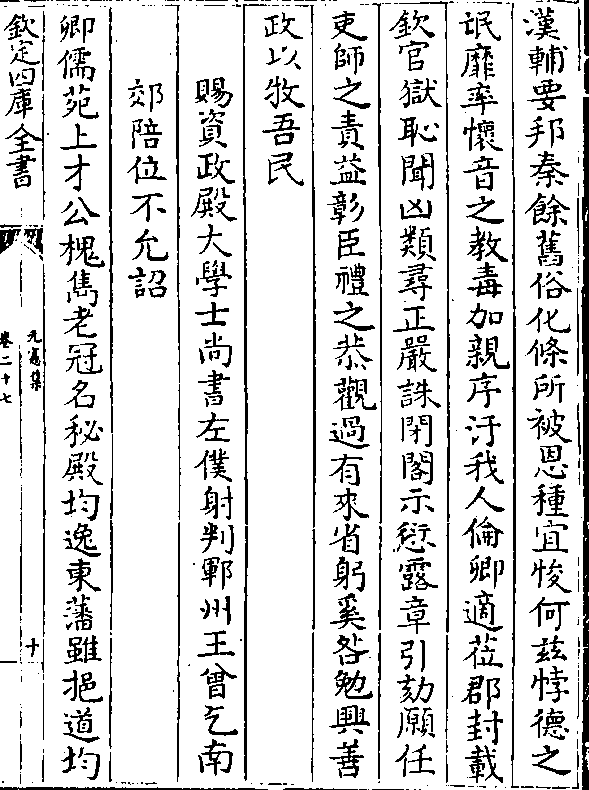 漢輔要邦秦餘舊俗化條所被恩種宜悛何兹悖德之
氓靡率懷音之教毒加親序汙我人倫卿適莅郡封載
欽官獄恥聞凶類尋正嚴誅閉閤示愆露章引劾願任
吏師之責益彰臣禮之恭觀過有來省躬奚咎勉興善
政以牧吾民
賜資政殿大學士尚書左僕射判鄆州王曾乞南
郊陪位不允詔
卿儒苑上才公槐雋老冠名秘殿均逸東藩雖挹道均
欽定四庫全書
元憲集
卷二十七
十